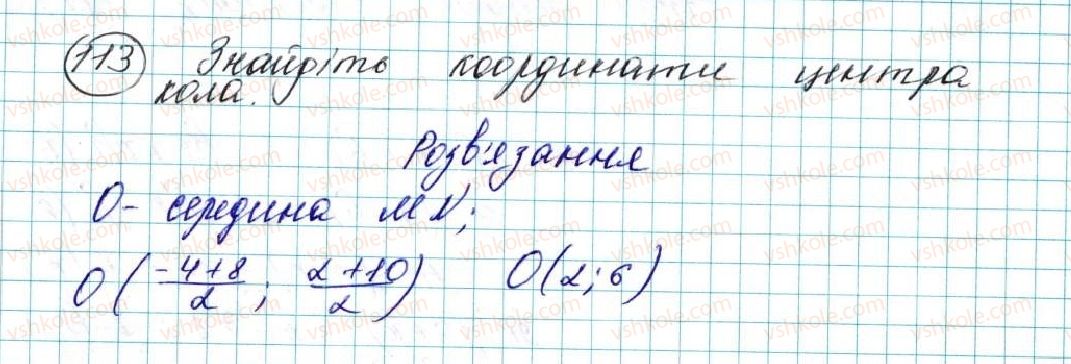 113 Знайдіть координати центра
кола.
Розв'язання
О - середина MN;
O(\frac{-4+8}{2}; \frac{2+10}{2}) O(2;6)